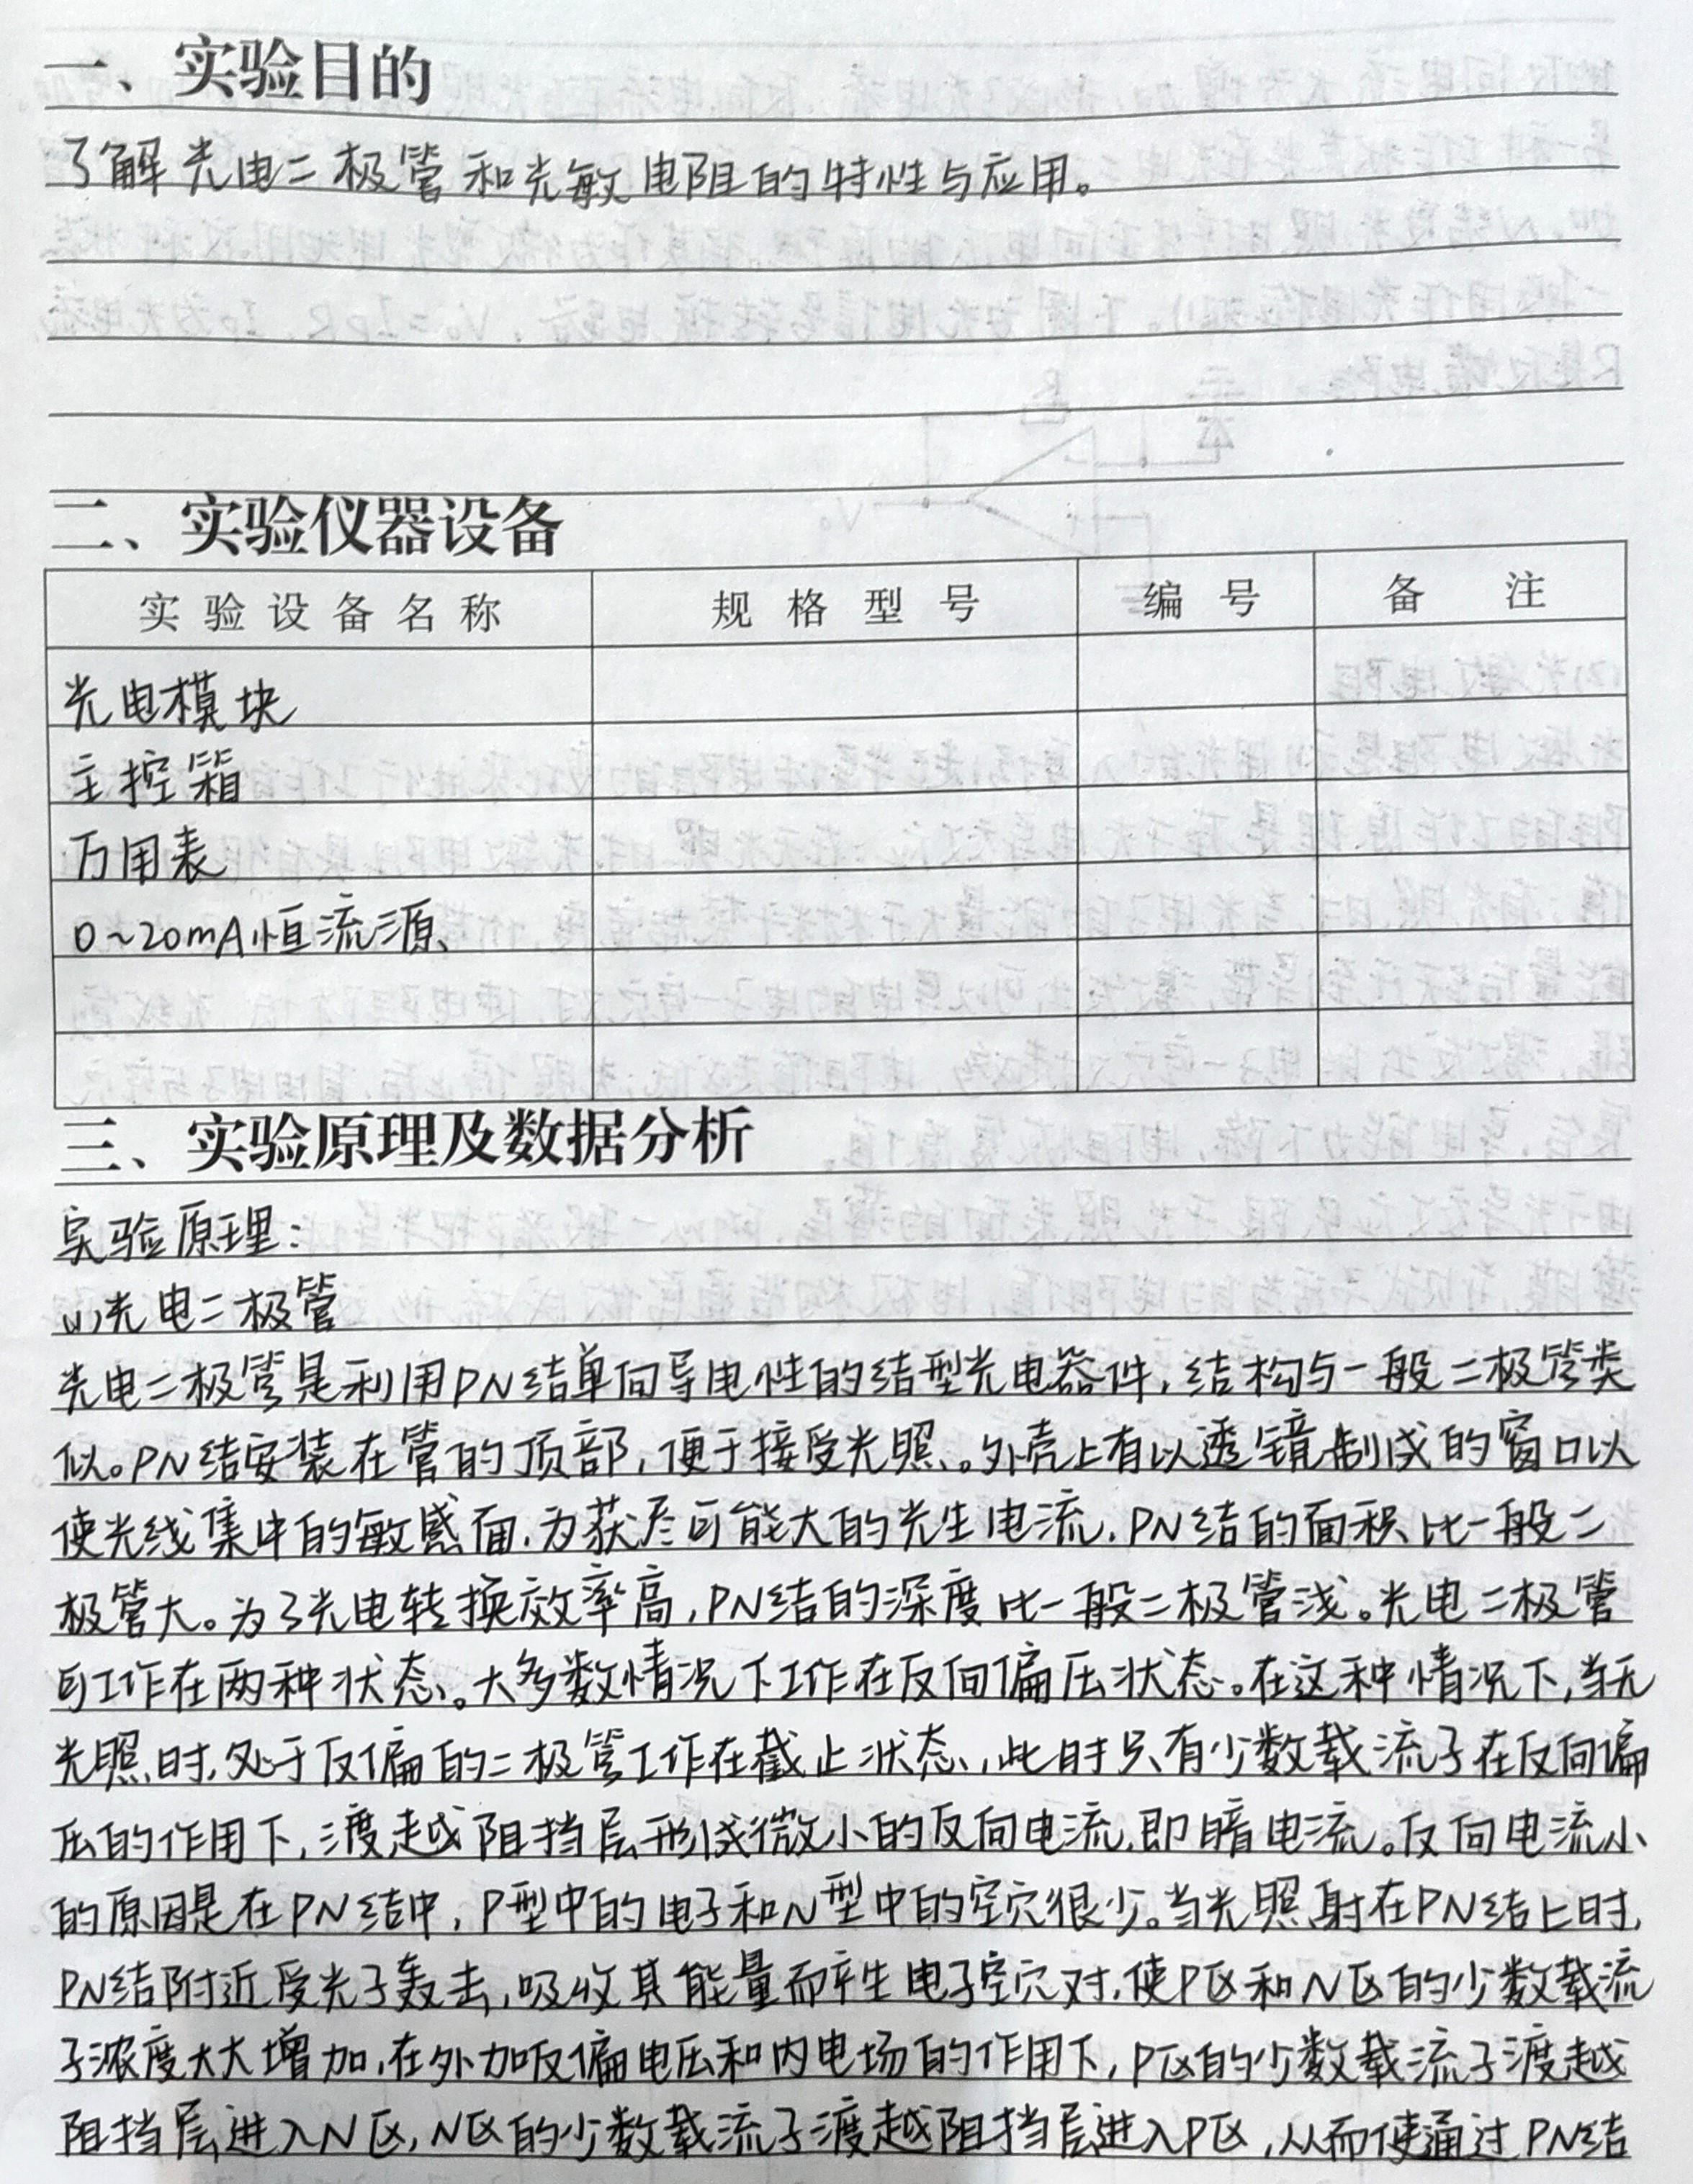 一、实验目的
了解光电二极管和光敏电阻的特性与应用。
二、实验仪器设备
实验设备名称 规格型号 编号 备注
光电模块
主控箱
万用表
0~20mA恒流源
三、实验原理及数据分析
实验原理:
(1)光电二极管
光电二极管是利用PN结单向导电性的结型光电器件,结构与一般二极管类
似。PN结安装在管的顶部,便于接受光照。外壳上有以透镜制成的窗口以
使光线集中的敏感面,为获尽可能大的光生电流,PN结的面积比一般二
极管大。为了光电转换效率高,PN结的深度比一般二极管浅。光电二极管
可工作在两种状态。大多数情况下工作在反向偏压状态。在这种情况下,当无
光照时,处于反偏的二极管工作在截止状态,此时只有少数载流子在反向偏
压的作用下,渡越阻挡层形成微小的反向电流,即暗电流。反向电流小
的原因是在PN结中,P型中的电子和N型中的空穴很少。当光照射在PN结上时,
PN结附近受光子轰击,吸收其能量而产生电子空穴对,使P区和N区的少数载流
子浓度大大增加,在外加反偏电压和内电场的作用下,P区的少数载流子渡越
阻挡层进入N区,N区的少数载流子渡越阻挡层进入P区,从而使通过PN结